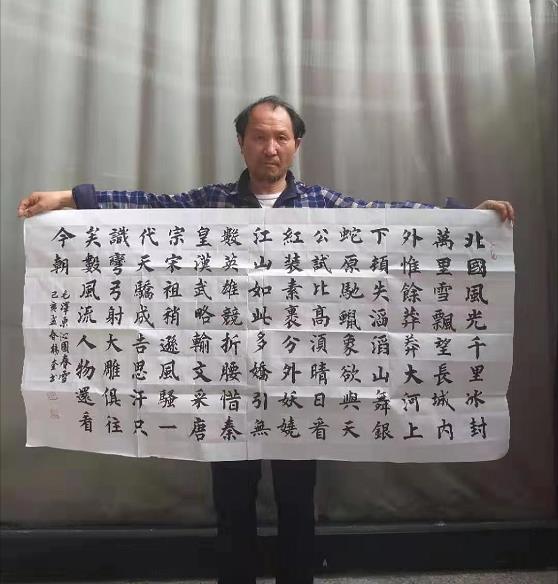 北國風光千里冰封
萬里雪飄望長城内
外惟餘莽莽大河上
下頓失滔滔山舞銀
蛇原馳蠟象欲與天
公試比高須晴日看
紅装素裹分外妖嬈
江山如此多嬌引無
數英雄競折腰惜秦
皇漢武略輸文采唐
宗宋祖稍遜風騷一
代天驕成吉思汗只
識彎弓射大雕俱往
矣數風流人物還看
今朝
毛澤東沁園春雪
己亥孟春楊